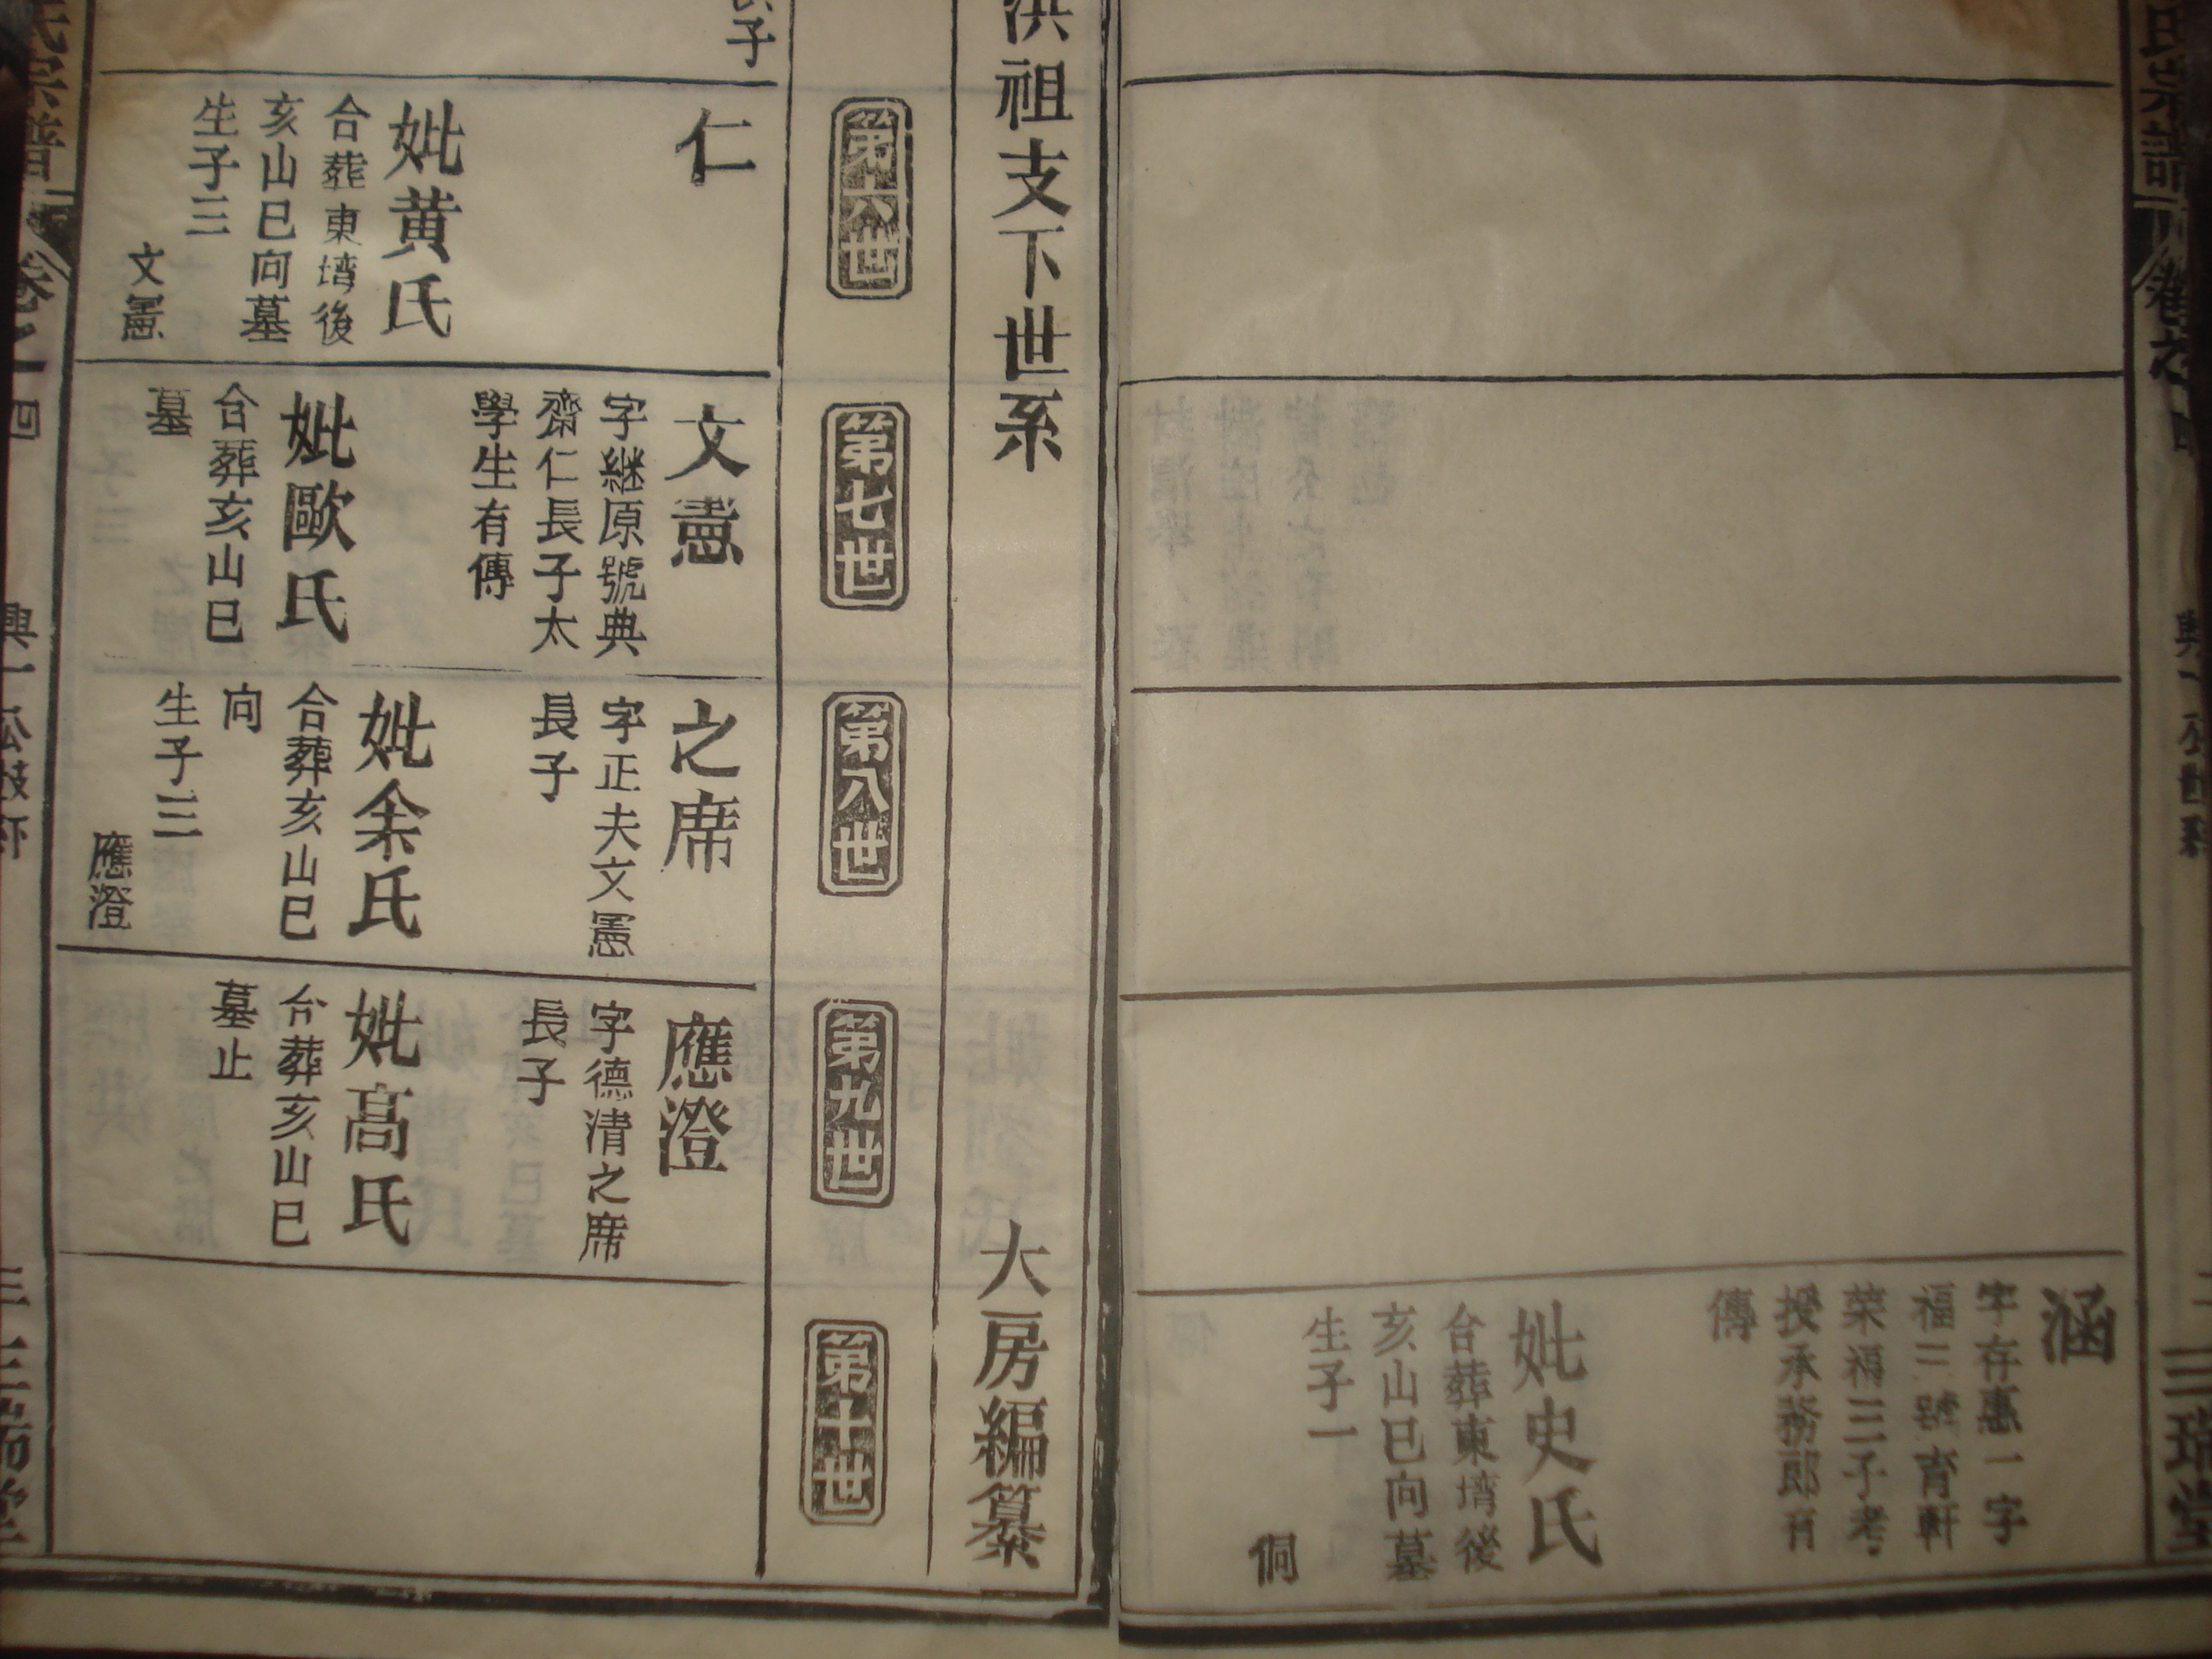 涵
字存惠一字
福二號育軒
榮福三子考
授承務郎有
傳
妣史氏
合葬東塆後
亥山巳向墓
生子一
侗
三瑞堂
洪祖支下世系
大房編纂
第六世
第七世
第八世
第九世
第十世
仁
妣黃氏
合葬東塆後
亥山巳向墓
生子三
文憲
文憲
字継原號典
齋仁長子太
學生有傳
妣歐氏
合葬亥山巳
墓
之席
字正夫文憲
長子
妣余氏
合葬亥山巳
向
生子三
應澄
應澄
字德清之席
長子
妣高氏
合葬亥山巳
墓止
氏宗譜
卷之四